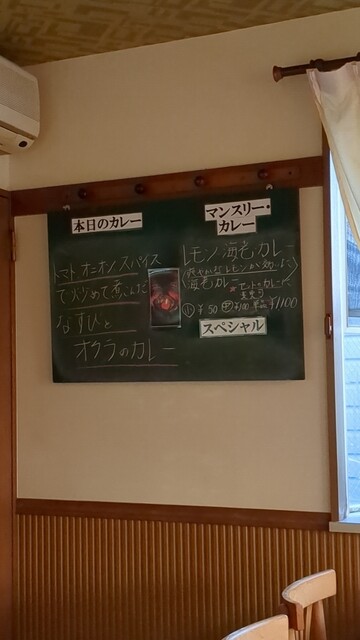 本日のカレー
トマト オニオン スパイス
で炒めて煮込んだ
なすびと
オクラのカレー
マンスリー・
カレー
レモン海老カレー
海老カレー
¥50
¥100
¥1100
スペシャル